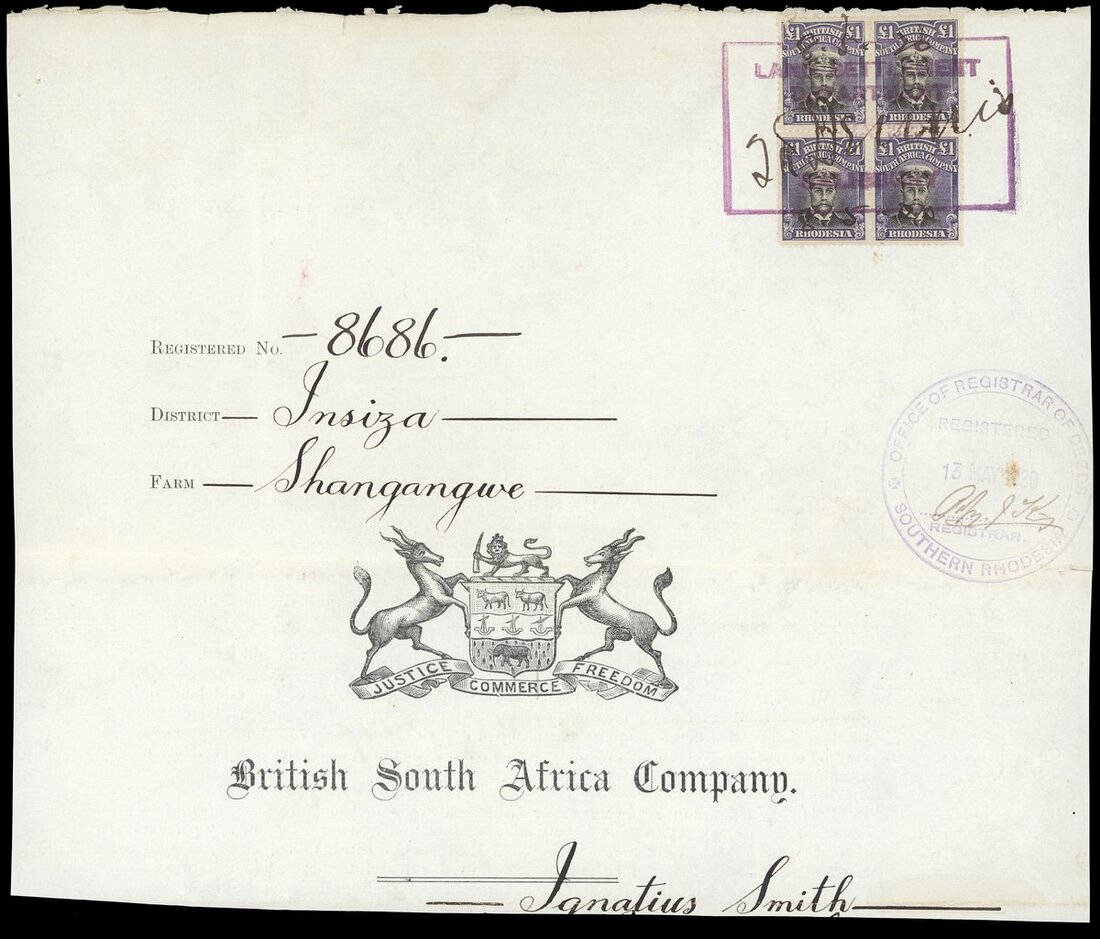 £1 BRITISH £1 £1 BRITISH £1
SOUTH AFRICA COMPANY SOUTH AFRICA COMPANY
LAND SETTLEMENT
RHODESIA RHODESIA
£1 BRITISH £1 £1 BRITISH £1
SOUTH AFRICA COMPANY SOUTH AFRICA COMPANY
RHODESIA RHODESIA
REGISTERED NO. — 8686. —
DISTRICT — Insiza —
FARM — Shangangwe —
OFFICE OF REGISTRAR OF DEEDS
REGISTERED
13 MAY 1920
REGISTRAR.
SOUTHERN RHODESIA
JUSTICE COMMERCE FREEDOM
British South Africa Company.
— Ignatius Smith —